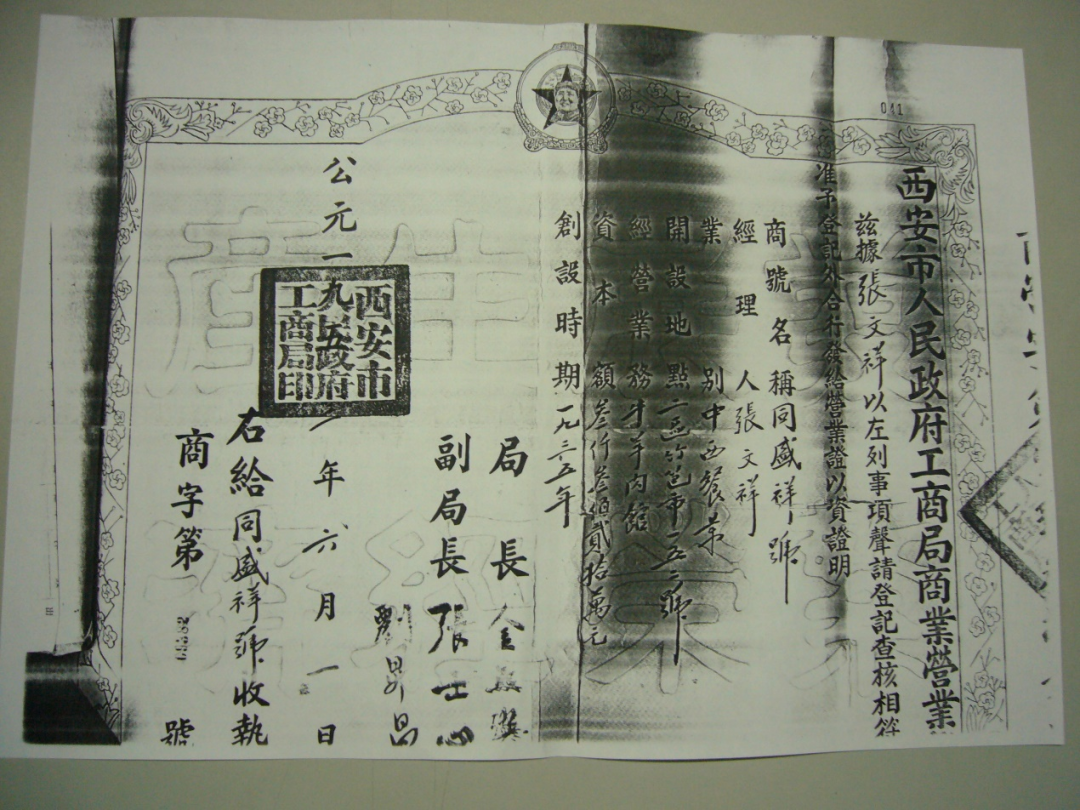 041
西安市人民政府工商局商業營業
茲據張文祥以左列事項聲請登記查核相符
准予登記外合行發給營業證以資證明
商號名稱同盛祥號
經理人張文祥
業別中西餐業
開設地點二區竹笆市一五二號
經營業務牛羊肉館
資本額叁仟叁佰貳拾萬元
創設時期一九三五年
局長金
副局長張士心
劉昇昌
公元一九五二年六月一日
西安市人民政府工商局印
右給同盛祥號收執
商字第
號